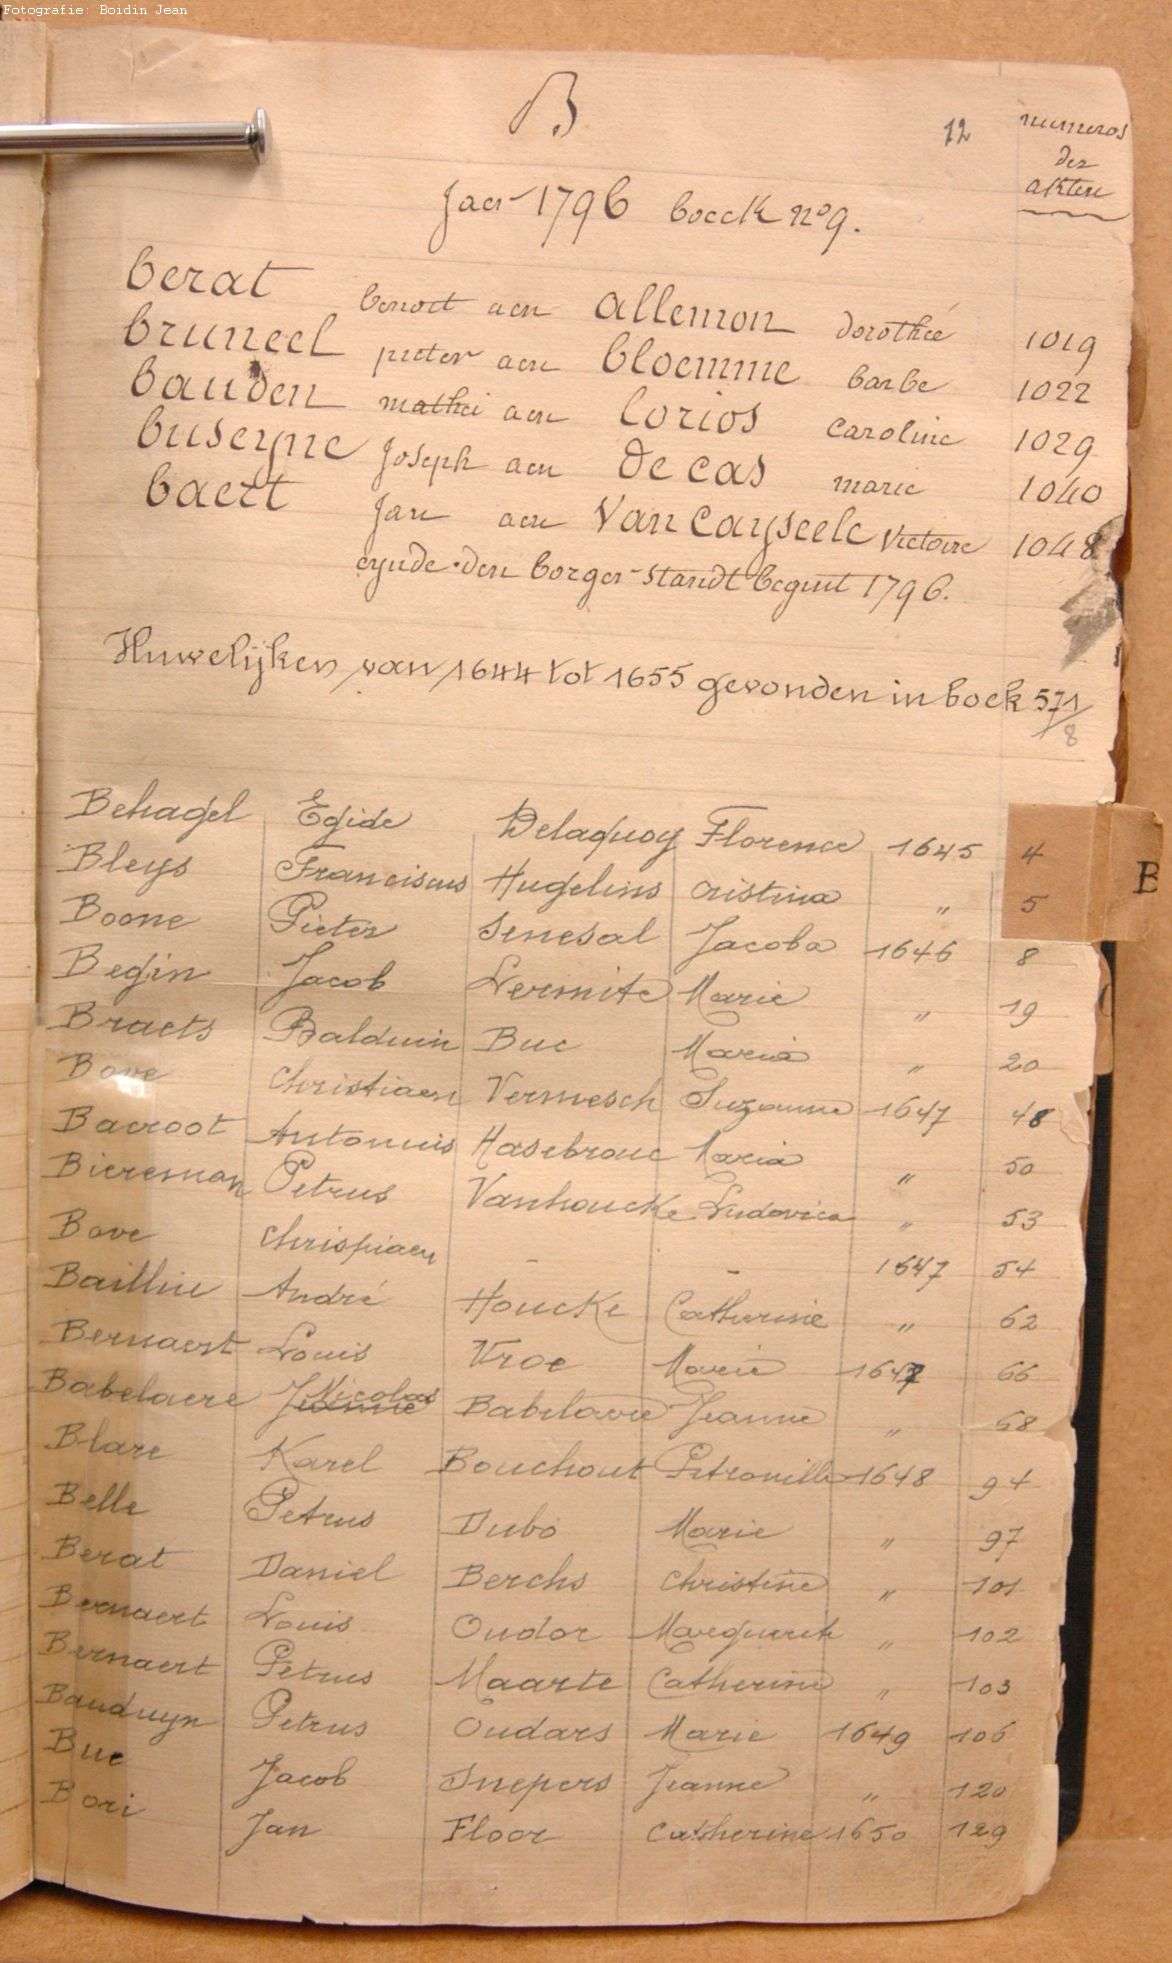 Fotografie: Boidin Jean
B
12
numeros
der
akten
Jaer 1796 boeck nº 9.
berat benoit aen allemon dorothée 1019
bruneel pieter aen bloemme barbe 1022
bauden mathei aen Corios caroline 1029
buseyne Joseph aen De cas marie 1040
baert Jan aen Van Cayseele Victoire 1048
eynde den borger-standt begint 1796.
Huwelijken van 1644 tot 1655 gevonden in boek 571/8
Behagel Egide Delaquoy Florence 1645 4
Bleys Franciscus Hugelins Cristina " 5
Boone Pieter Senesal Jacoba 1646 8
Begin Jacob Lermite Marie " 19
Braets Balduin Buc Maria " 20
Bove Christiaen Vermesch Suzanne 1647 48
Bacroot Antonius Hasebrouc Maria " 50
Bieresman Petrus Vanhoucke Ludovica " 53
Bove Chrispiaen - - 1647 54
Bailliu André Houcke Catherine " 62
Bernaert Louis Vroe Marie 1647 66
Babelaere Nicolas Jeanne Babelaere Jeanne " 68
Blare Karel Bouchout Petronille 1648 94
Belle Petrus Dubo Marie " 97
Berat Daniel Berchs Christine " 101
Bernaert Louis Oudor Marguerite " 102
Bernaert Petrus Maarte Catherine " 103
Bauduyn Petrus Oudars Marie 1649 106
Buc Jacob Snepers Jeanne " 120
Bori Jan Floor Catherine 1650 129
B